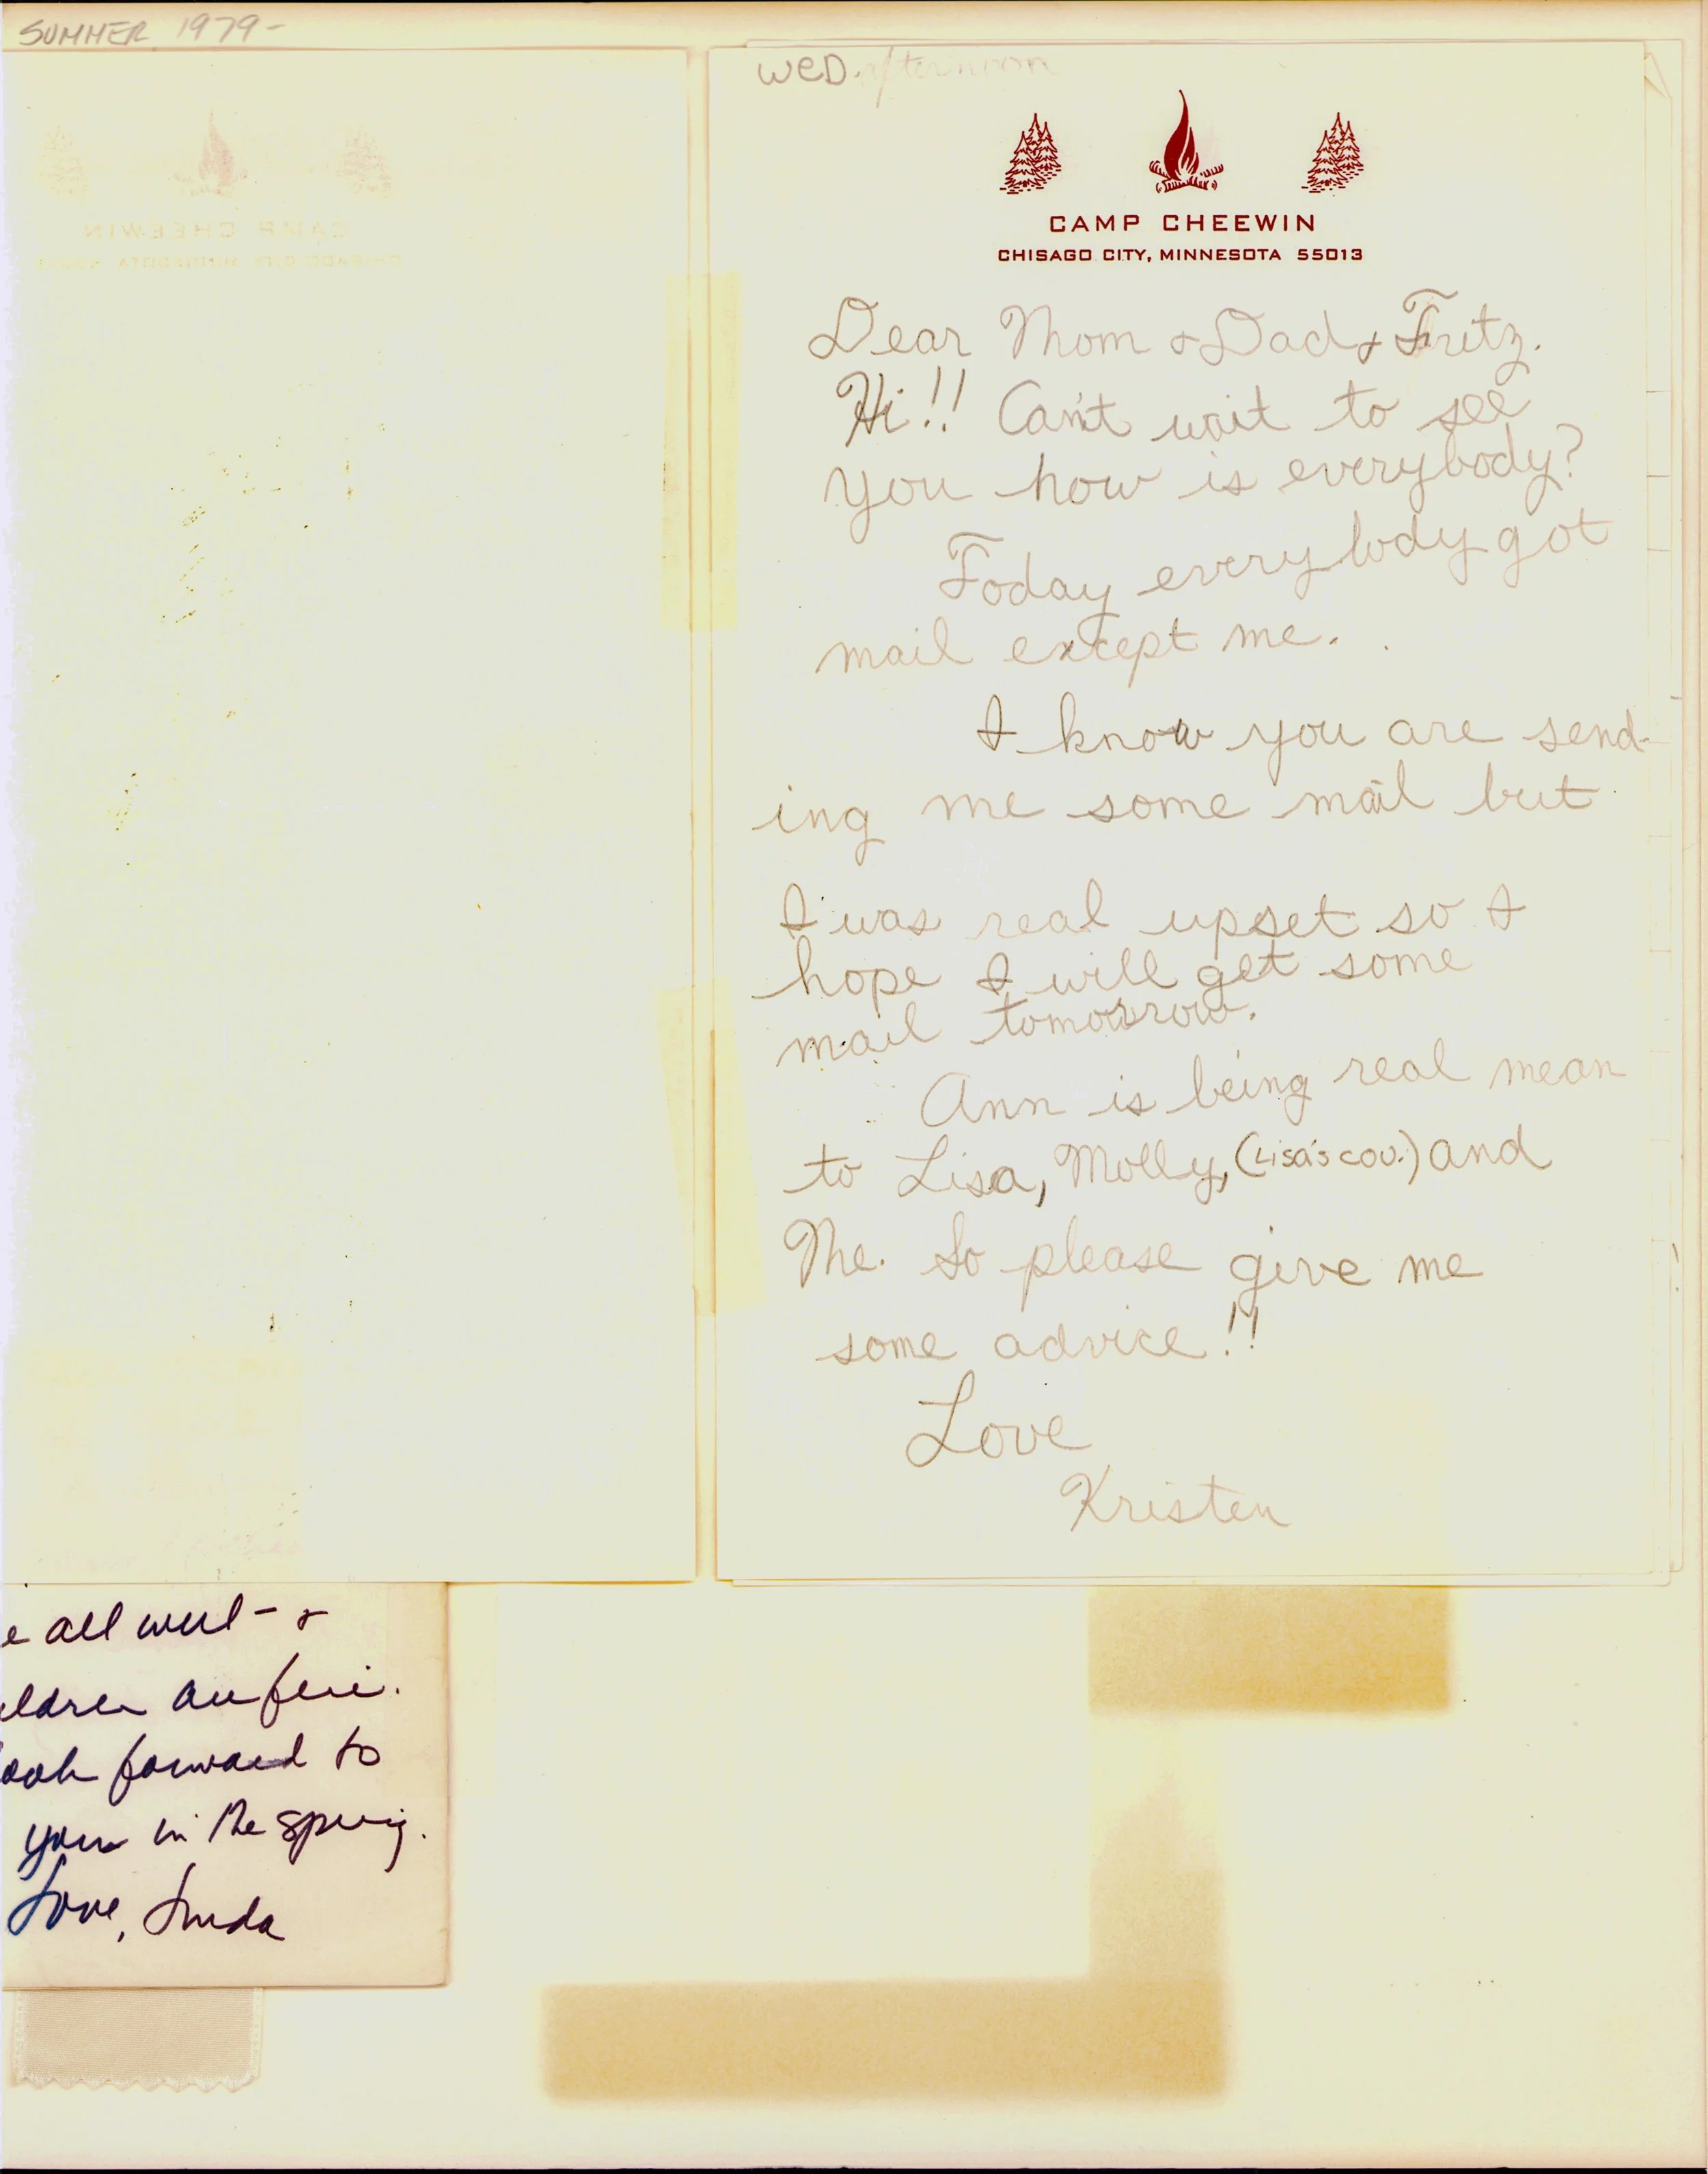 SUMMER 1979-
WED. afternoon
CAMP CHEEWIN
CHISAGO CITY, MINNESOTA 55013
Dear Mom & Dad & Fritz.
Hi!! Can't wait to see
you how is everybody?
Today everybody got
mail except me.
I know you are send-
ing me some mail but
I was real upset so I
hope I will get some
mail tomorrow.
Ann is being real mean
to Lisa, Molly, (Lisa's cou.) and
Me. So please give me
some advice!!
Love
Kristen
e all well - &
ldren are fine.
ook forward to
your in the spring.
Love, Linda